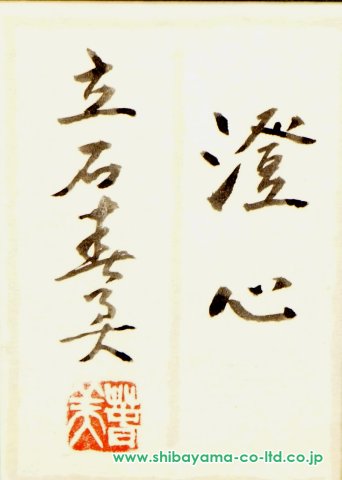 澄心
立石春美
春美
www.shibayama-co-ltd.co.jp